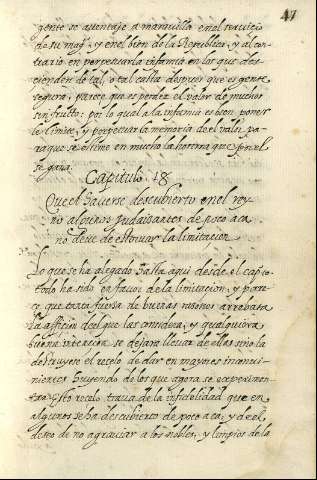 47
gente se aventaje a maravilla en el servicio
de su magd. y en el bien de la Republica, y al con-
trario en perpetuarla infamia en los que des-
cienden de tal, o tal casta despues que es gente
segura, parece que es perder el valor de muchos
sin fructo: por lo qual a la infamia es bien poner-
le limite, y perpetuar la memoria de el valor pa-
ra que se estime en mucho la honrra que por el
se gana.
Capitulo. 18
Que el haverse descubierto en el rey-
no algunos Judaisantes de poco aca
no deve de estorvar la limitacion
Lo que se ha alegado hasta aqui desde el capo.
todo ha sido en favor de la limitacion, y pare-
ce que tanta fuersa de buenas rasones arrebata
la afficion del que las considera, y qualquiera
buena intencion se dejara llevar de ellas sino la
destruyese el recelo de dar en mayores inconvi-
nientes huyendo de los que agora se experimen-
tan. Esto recelo trava de la infidelidad que en
algunos se ha descubierto de poco aca, y de el
deseo de no agraviar a los nobles, y limpios de lo